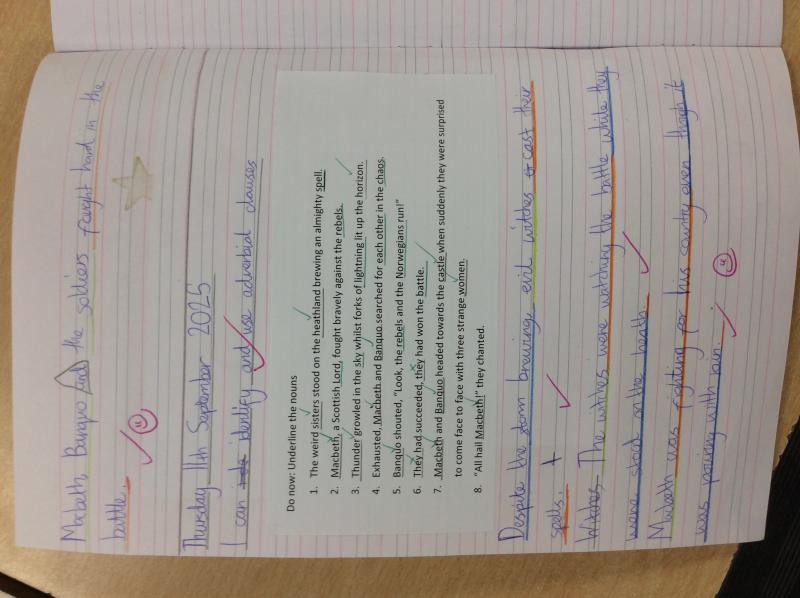 Macbeth, Banquo and the soldiers fought hard in the
battle.
Thursday 11th September 2025
I can identify and use adverbial clauses
Do now: Underline the nouns
1. The weird sisters stood on the heathland brewing an almighty spell.
2. Macbeth, a Scottish Lord, fought bravely against the rebels.
3. Thunder growled in the sky whilst forks of lightning lit up the horizon.
4. Exhausted, Macbeth and Banquo searched for each other in the chaos.
5. Banquo shouted, "Look, the rebels and the Norwegians run!"
6. They had succeeded, they had won the battle.
7. Macbeth and Banquo headed towards the castle when suddenly they were surprised
to come face to face with three strange women.
8. "All hail Macbeth!" they chanted.
Despite the storm brewing, evil witches cast their
spells.
Witches The witches were watching the battle while they
were stood on the heath.
Macbeth was fighting for his country even though it
was pouring with rain.